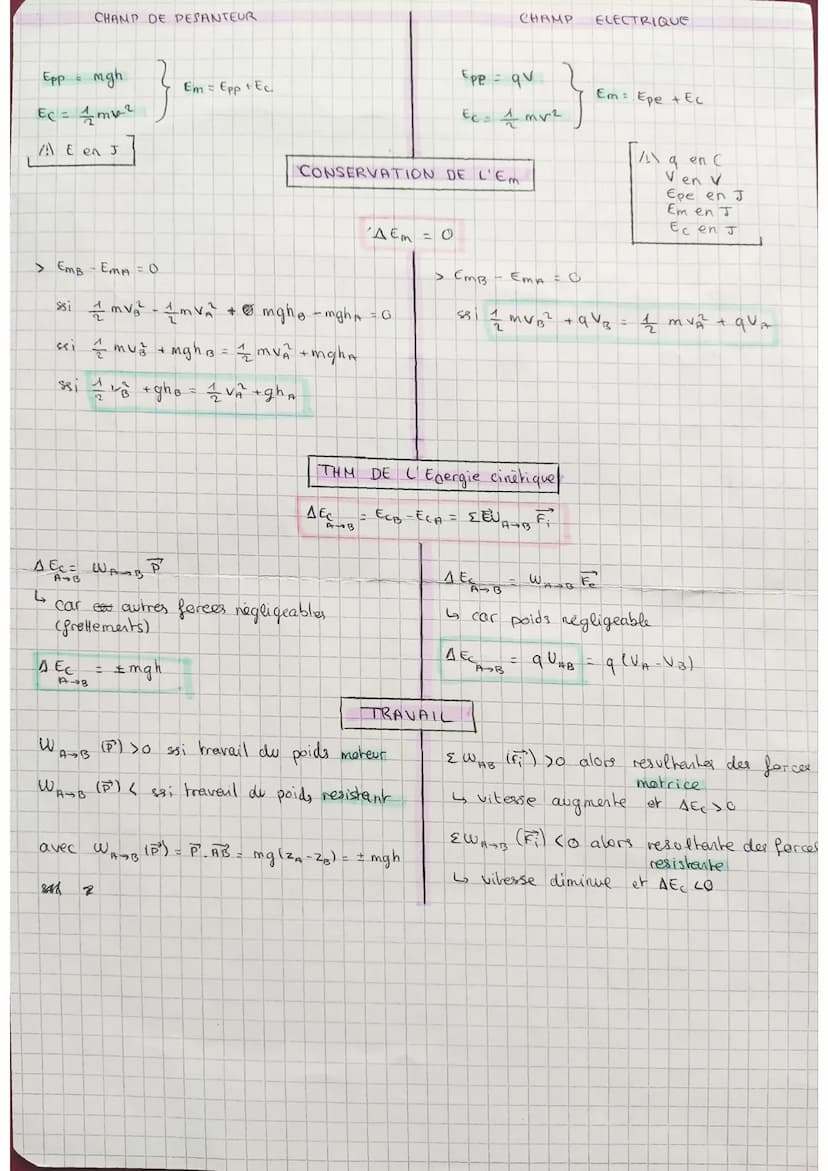 CHAMP DE PESANTEUR
CHAMP ELECTRIQUE
Epp = mgh
Ec = 1/2 mv²
} Em = Epp + Ec
/!\ E en J
Epe = qV
Ec = 1/2 mv²
} Em = Epe + Ec
/!\ q en C
V en V
Epe en J
Em en J
Ec en J
CONSERVATION DE L'Em
ΔEm = 0
> EmB - EmA = 0
ssi 1/2 mvB² - 1/2 mvA² + mghB - mghA = 0
ssi 1/2 mvB² + mghB = 1/2 mvA² + mghA
ssi 1/2 vB² + ghB = 1/2 vA² + ghA
> EmB - EmA = 0
ssi 1/2 mvB² + qVB = 1/2 mvA² + qVA
THM DE L'Energie cinétique
ΔEc A→B = EcB - EcA = ΣW A→B Fi→
ΔEc A→B = W A→B P→
↳ car autres forces négligeables
(frottements)
ΔEc A→B = ± mgh
ΔEc A→B = W A→B Fe→
↳ car poids négligeable
ΔEc A→B = q UAB = q (VA - VB)
TRAVAIL
W A→B (P→) > 0 ssi travail du poids moteur
W A→B (P→) < ssi travail du poids resistant
avec W A→B (P→) = P→ . AB→ = mg(zA - zB) = ± mgh
Σ W AB (Fi→) > 0 alors resultantes des forces
motrice
↳ vitesse augmente et ΔEc > 0
ΣW A→B (Fi→) < 0 alors resultante des forces
resistante
↳ vitesse diminue et ΔEc < 0